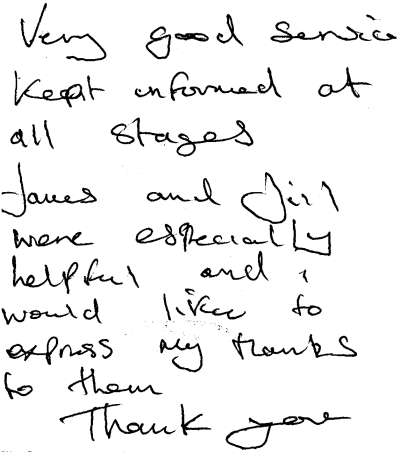 Very good service
Kept informed at
all stages
James and Jill
were especially
helpful and i
would like to
express my thanks
to them
Thank you